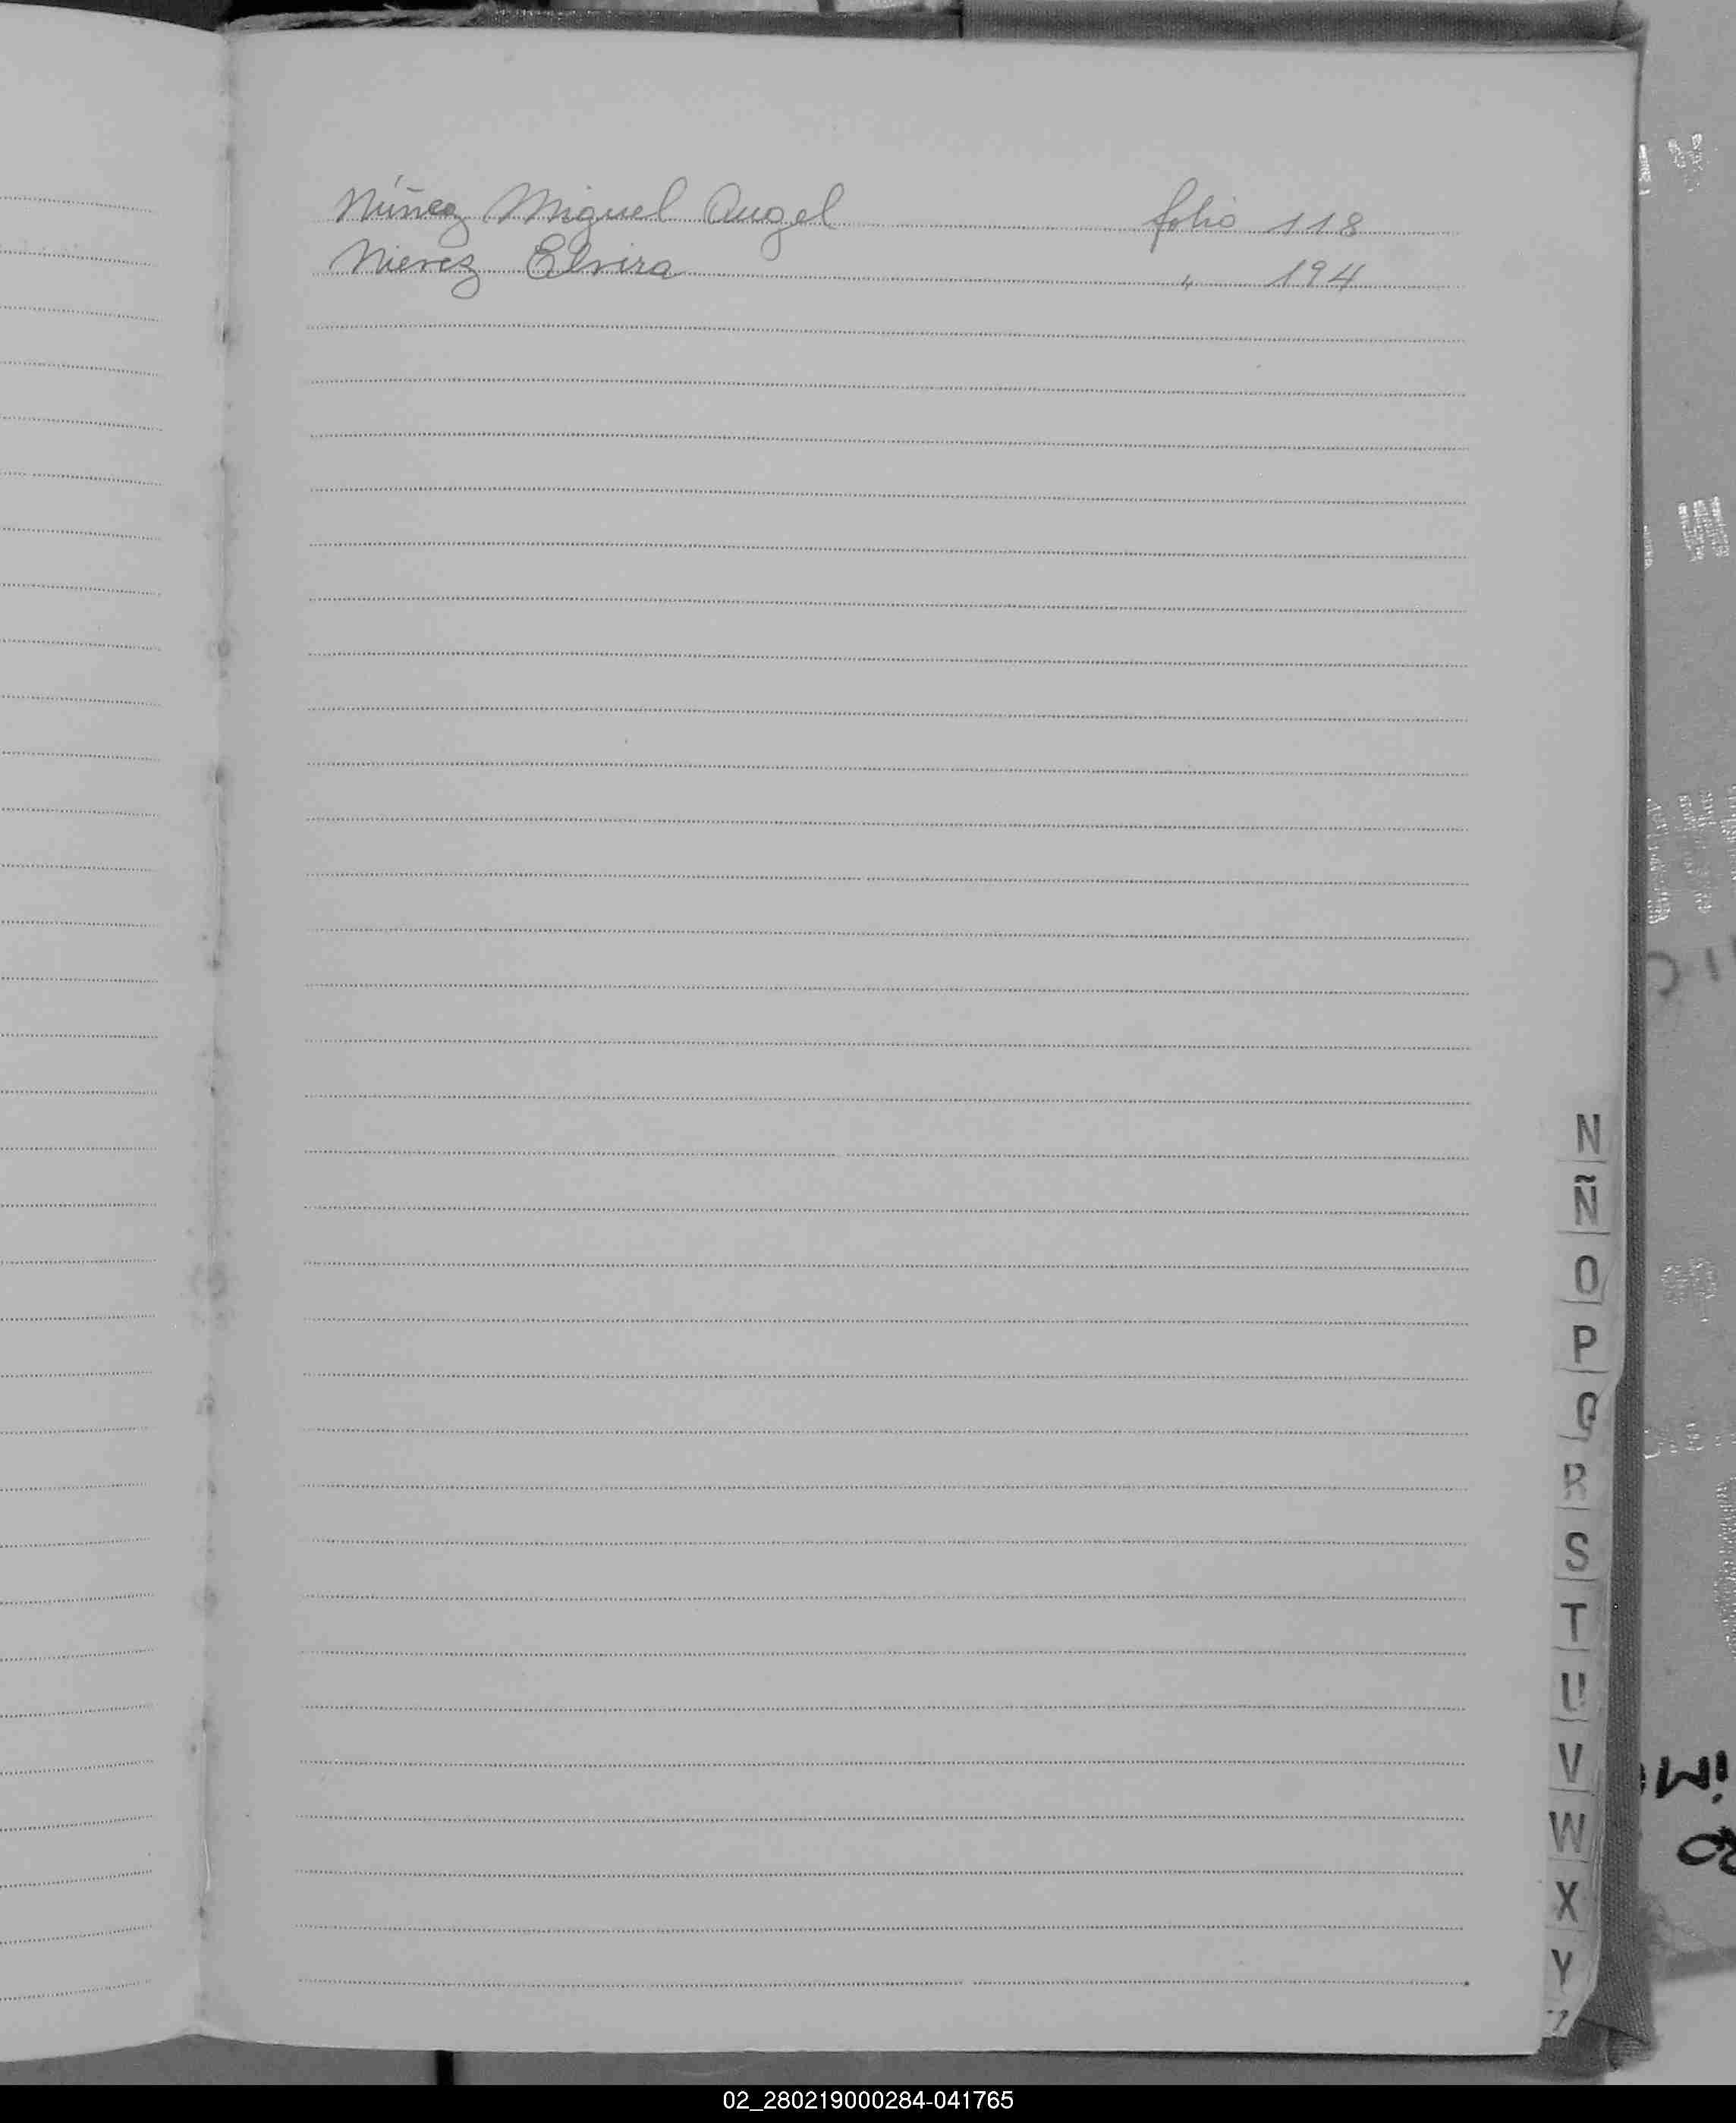 Núñez Miguel Angel folio 118
Nievez Elvira " 194
N
Ñ
O
P
Q
R
S
T
U
V
W
X
Y
02_280219000284-041765